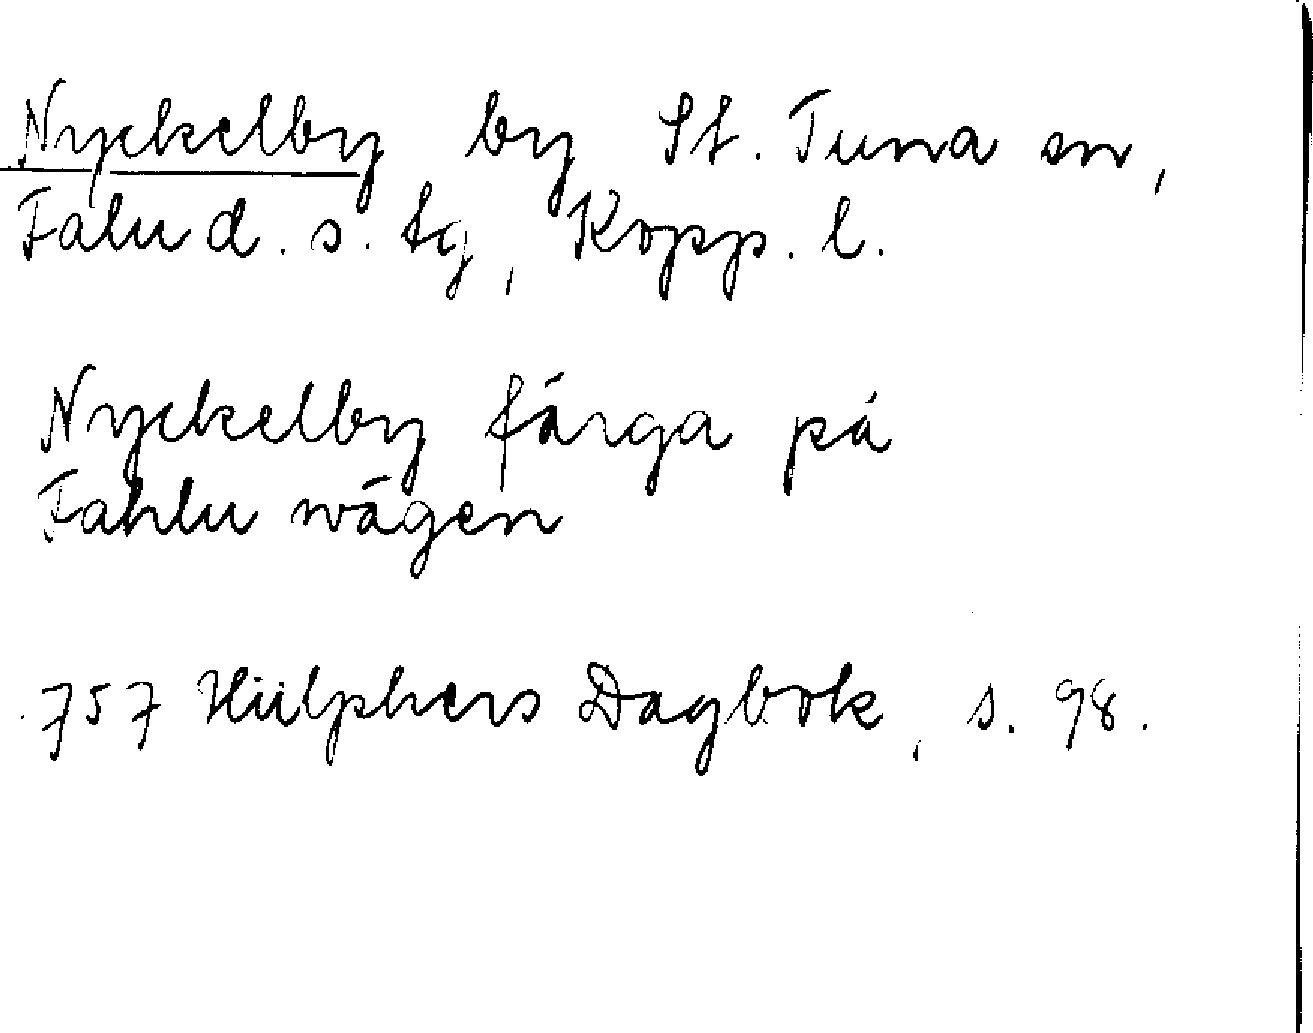 Nyckelby by St. Tuna sn,
Falu d. s. tg, Kopp. l.
Nyckelby färga på
Fahlu wägen
757 Hülphers Dagbok, s. 98.